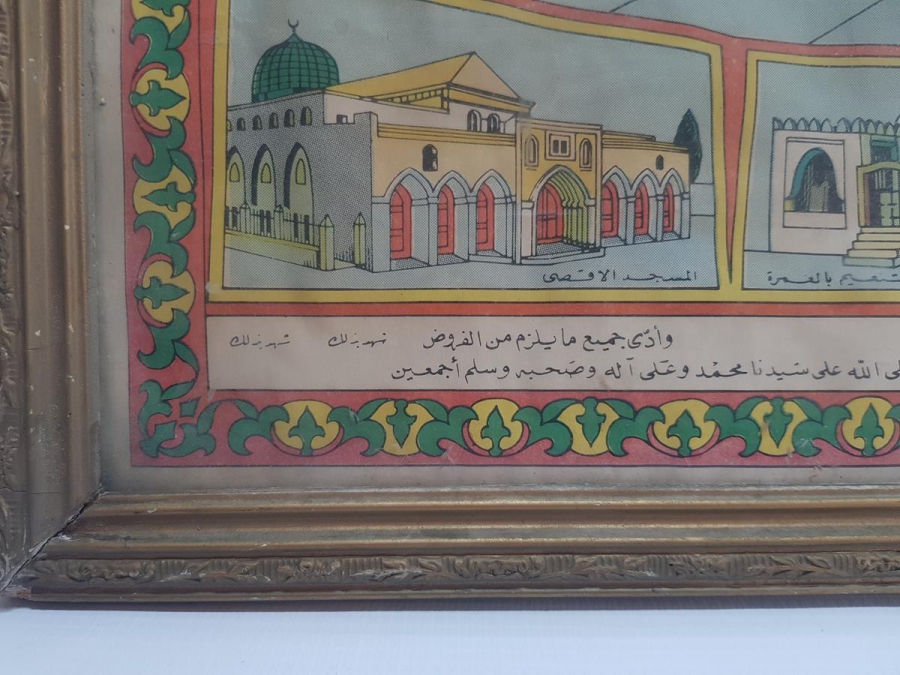 المسجد الاقصى
تنعيم بالعمرة
وأدّى جميع ما يلزم من الفروض شهد بذلك شهد بذلك
الله على سيدنا محمد وعلى آله وصحبه وسلم أجمعين